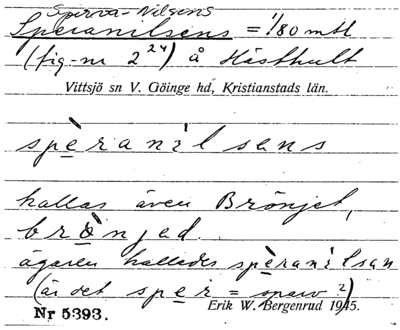 Sperva-Nilsens
Speranilsens = 1/80 mtl
(fig-nr 2²⁴) å Hästhult
Vittsjö sn V. Göinge hd, Kristianstads län.
spèranìlsens
kallas även Brönjet,
brònjed.
ägaren kallades spèranìlsan
(är det sper = sparv ?)
Erik W. Bergenrud 1945.
Nr 5393.